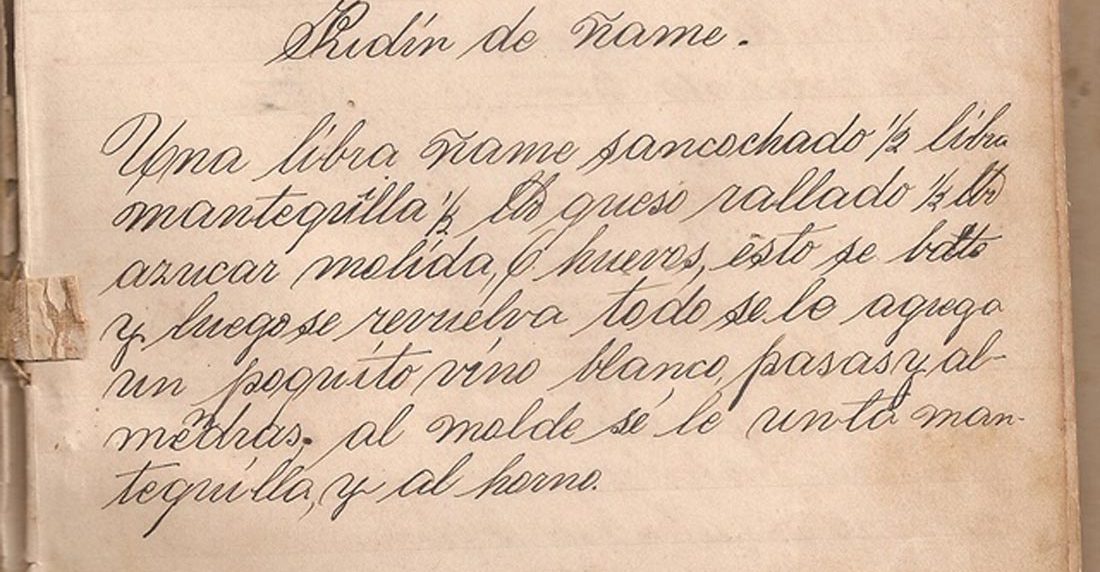 Pudín de ñame.
Una libra ñame sancochado 1/2 libra
mantequilla 1/2 lb queso rallado 1/2 lb
azucar molida, 6 huevos, esto se bate
y luego se revuelva todo se le agrega
un poquito vino blanco, pasas y al-
mendras, al molde se le unta man-
tequilla, y al horno.